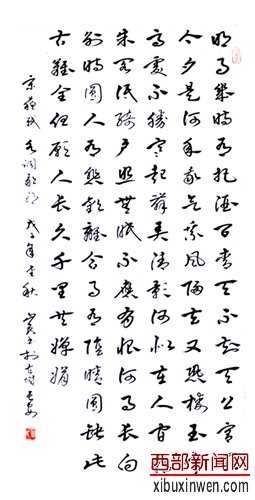 明月幾時有把酒問青天不知天上宮
今夕是何年我欲乘風歸去又恐瓊樓玉
高處不勝寒起舞弄清影何似在人間
朱閣低綺戶照無眠不應有恨何事長向
別時圓人有悲歡離合月有陰晴圓缺此
古難全但願人長久千里共嬋娟
宋蘇軾水調歌頭 戊子年金秋
西部新闻网
xibuxinwen.com